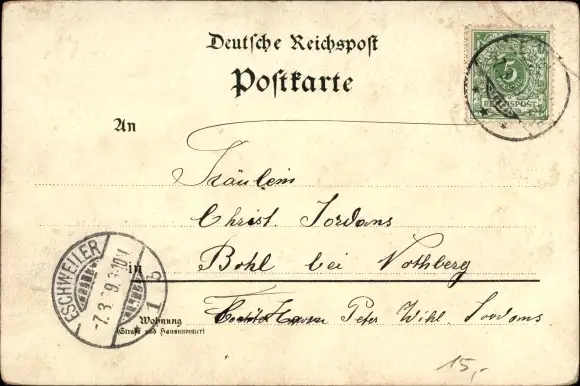 Deutsche Reichspost
Postkarte
5
REICHSPOST
An
Fräulein
Christ. Jordans
ESCHWEILER
7.3.99.
1 b
in
Bohl bei Nothberg
Wohnung
(Straße und Hausnummer)
Peter Wilh. Jordans
15,-